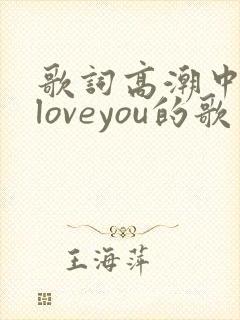 歌詞高潮中
loveyou的歌
王海萍